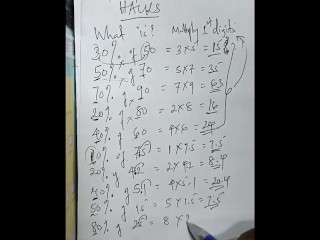 HACKS
What is? Multiply 1st digits
30% of 50 = 3x5 = 15
50% of 70 = 5x7 = 35
70% of 90 = 7x9 = 63
20% of 80 = 2x8 = 16
40% of 60 = 4x6 = 24
10% of 75 = 1x7.5 = 7.5
20% of 42 = 2x4.2 = 8.4
40% of 51 = 4x5.1 = 20.4
50% of 15 = 5x1.5 = 7.5
80% of 25 = 8x2